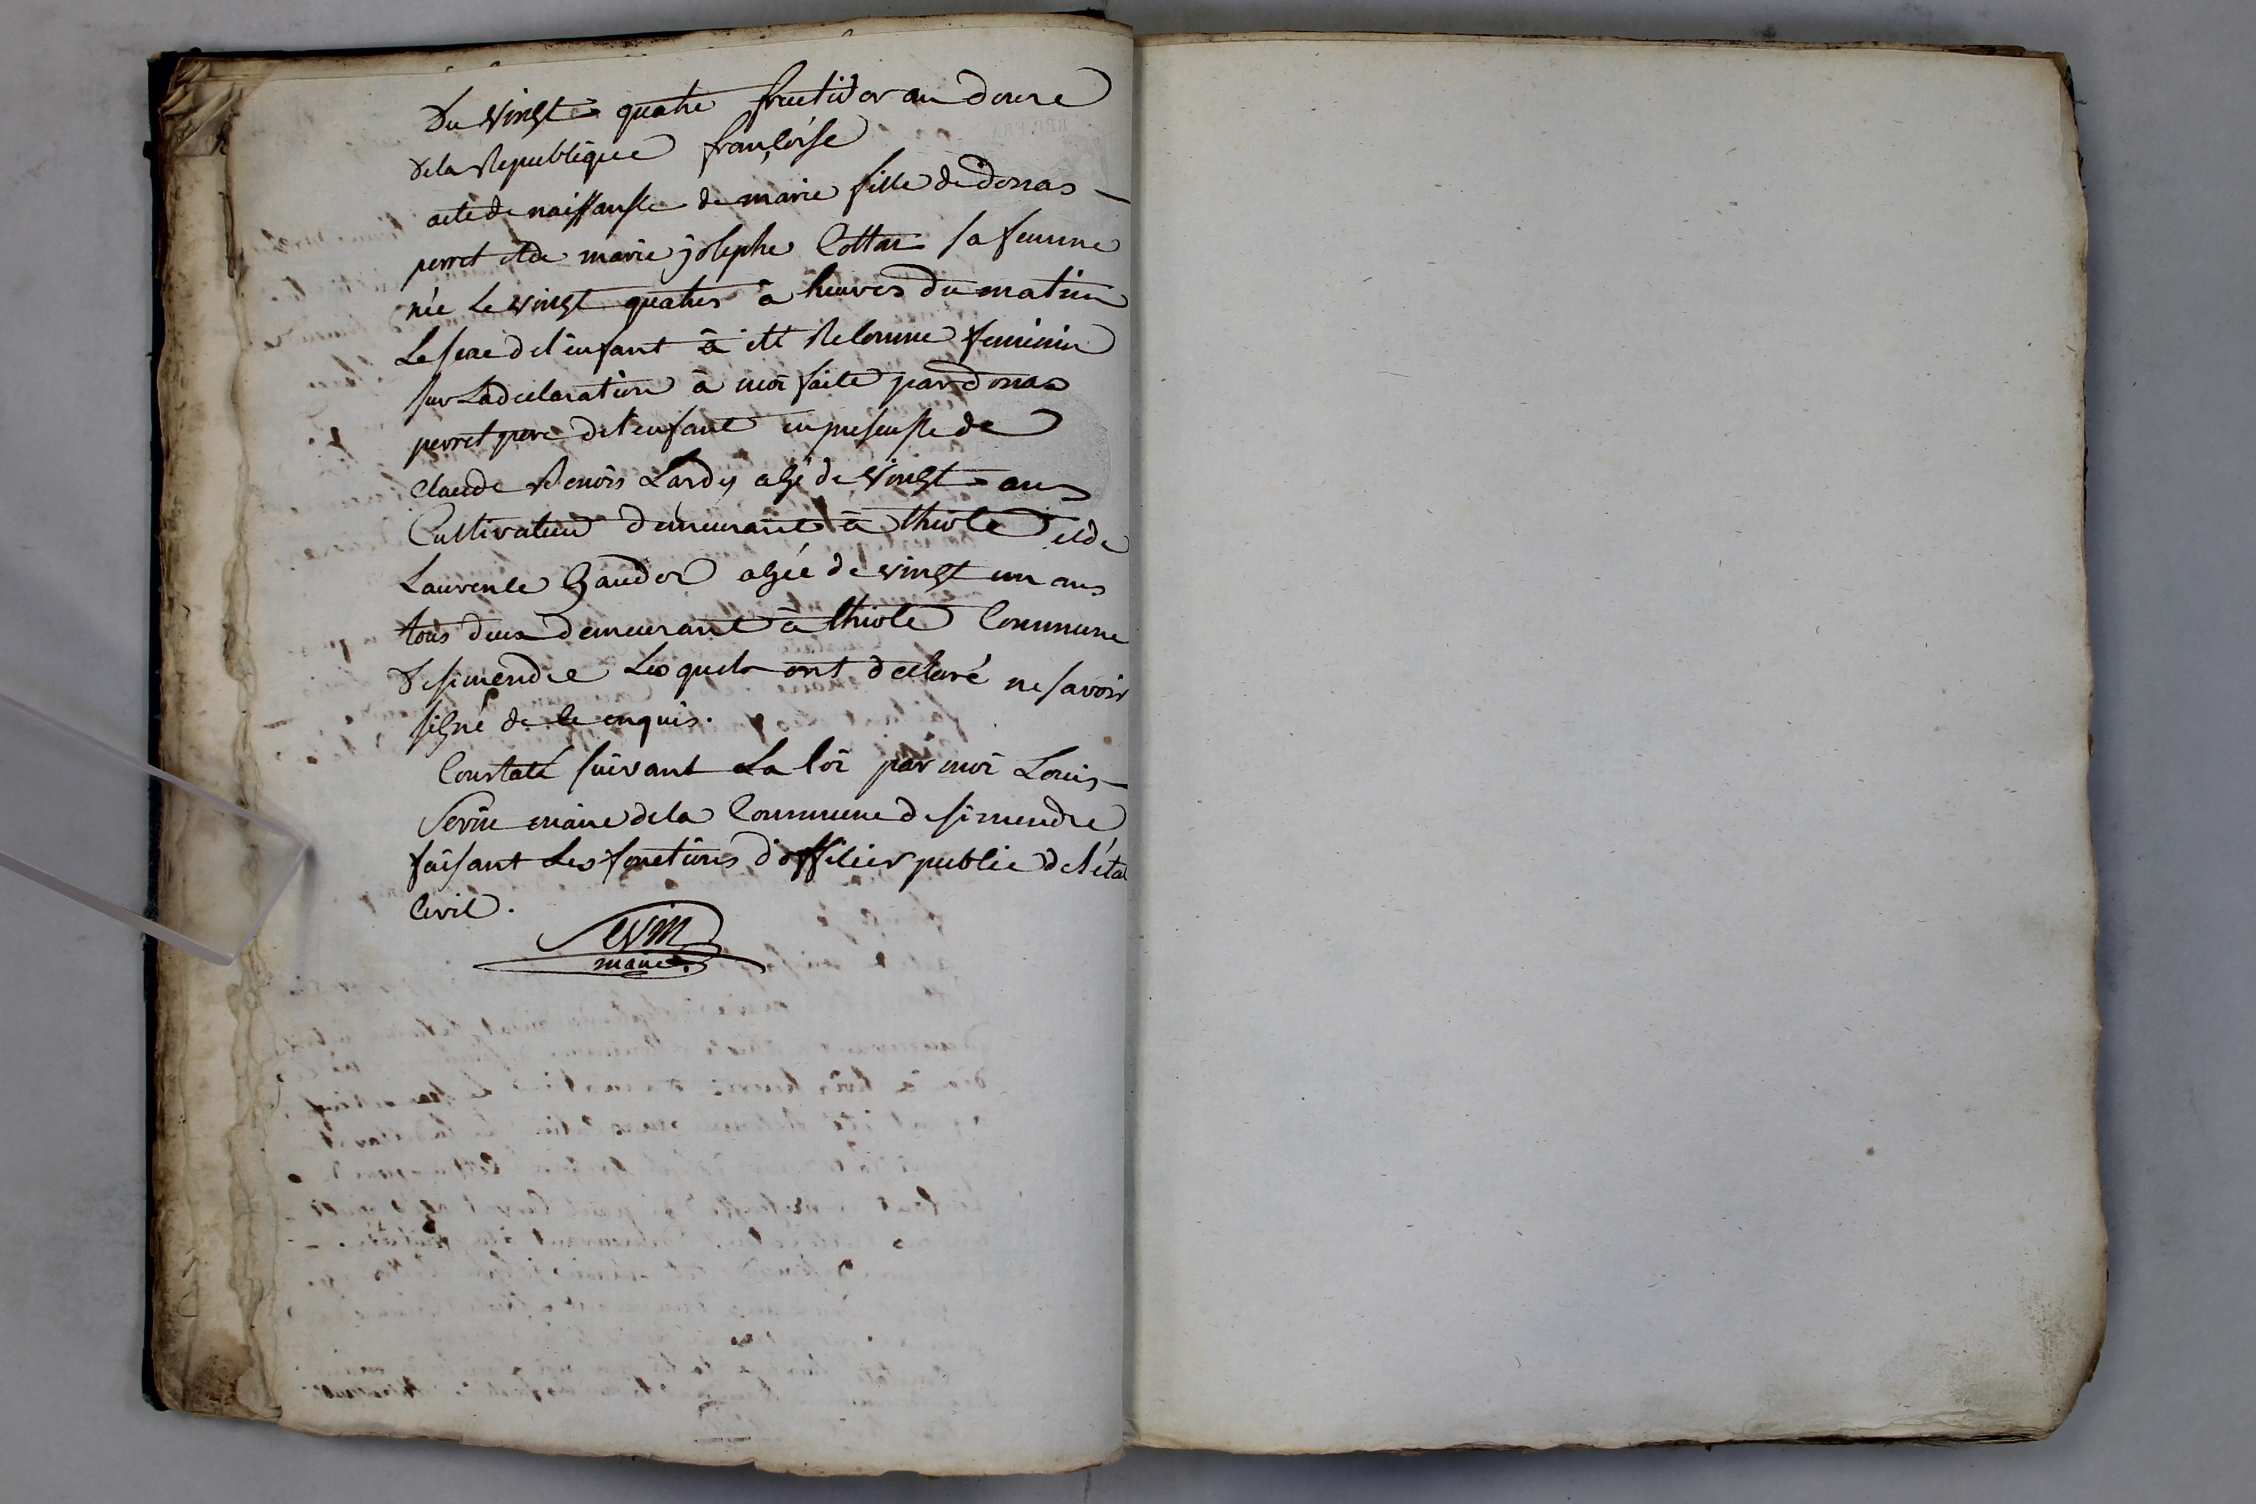 Du vingt quatre fructidor an douze
de la Republique françoise
acte de naissansce de marie fille de donas
perret et de marie josephe Cottar sa femme
née le vingt quatres à heuvres du matin
Le sexe de l'enfant à eté Reconnue feminin
sur La declaration à moi faite par donas
perret pere de l'enfant en presensce de
claude Benois Lardy agé de vingt ans
Cultivateur demeurant à thiole et de
Laurence gaudor agée de vingt un ans
tous deux demeurant à thiole Commune
de simendre Les quels ont declaré ne savoir
signé de ce enquis.
Constaté suivant La loi par moi Louis
Sevin maire de la Commune de simendre
faisant Les fonctions d'officier public de l'éta
Civil.
Sevin
maire.